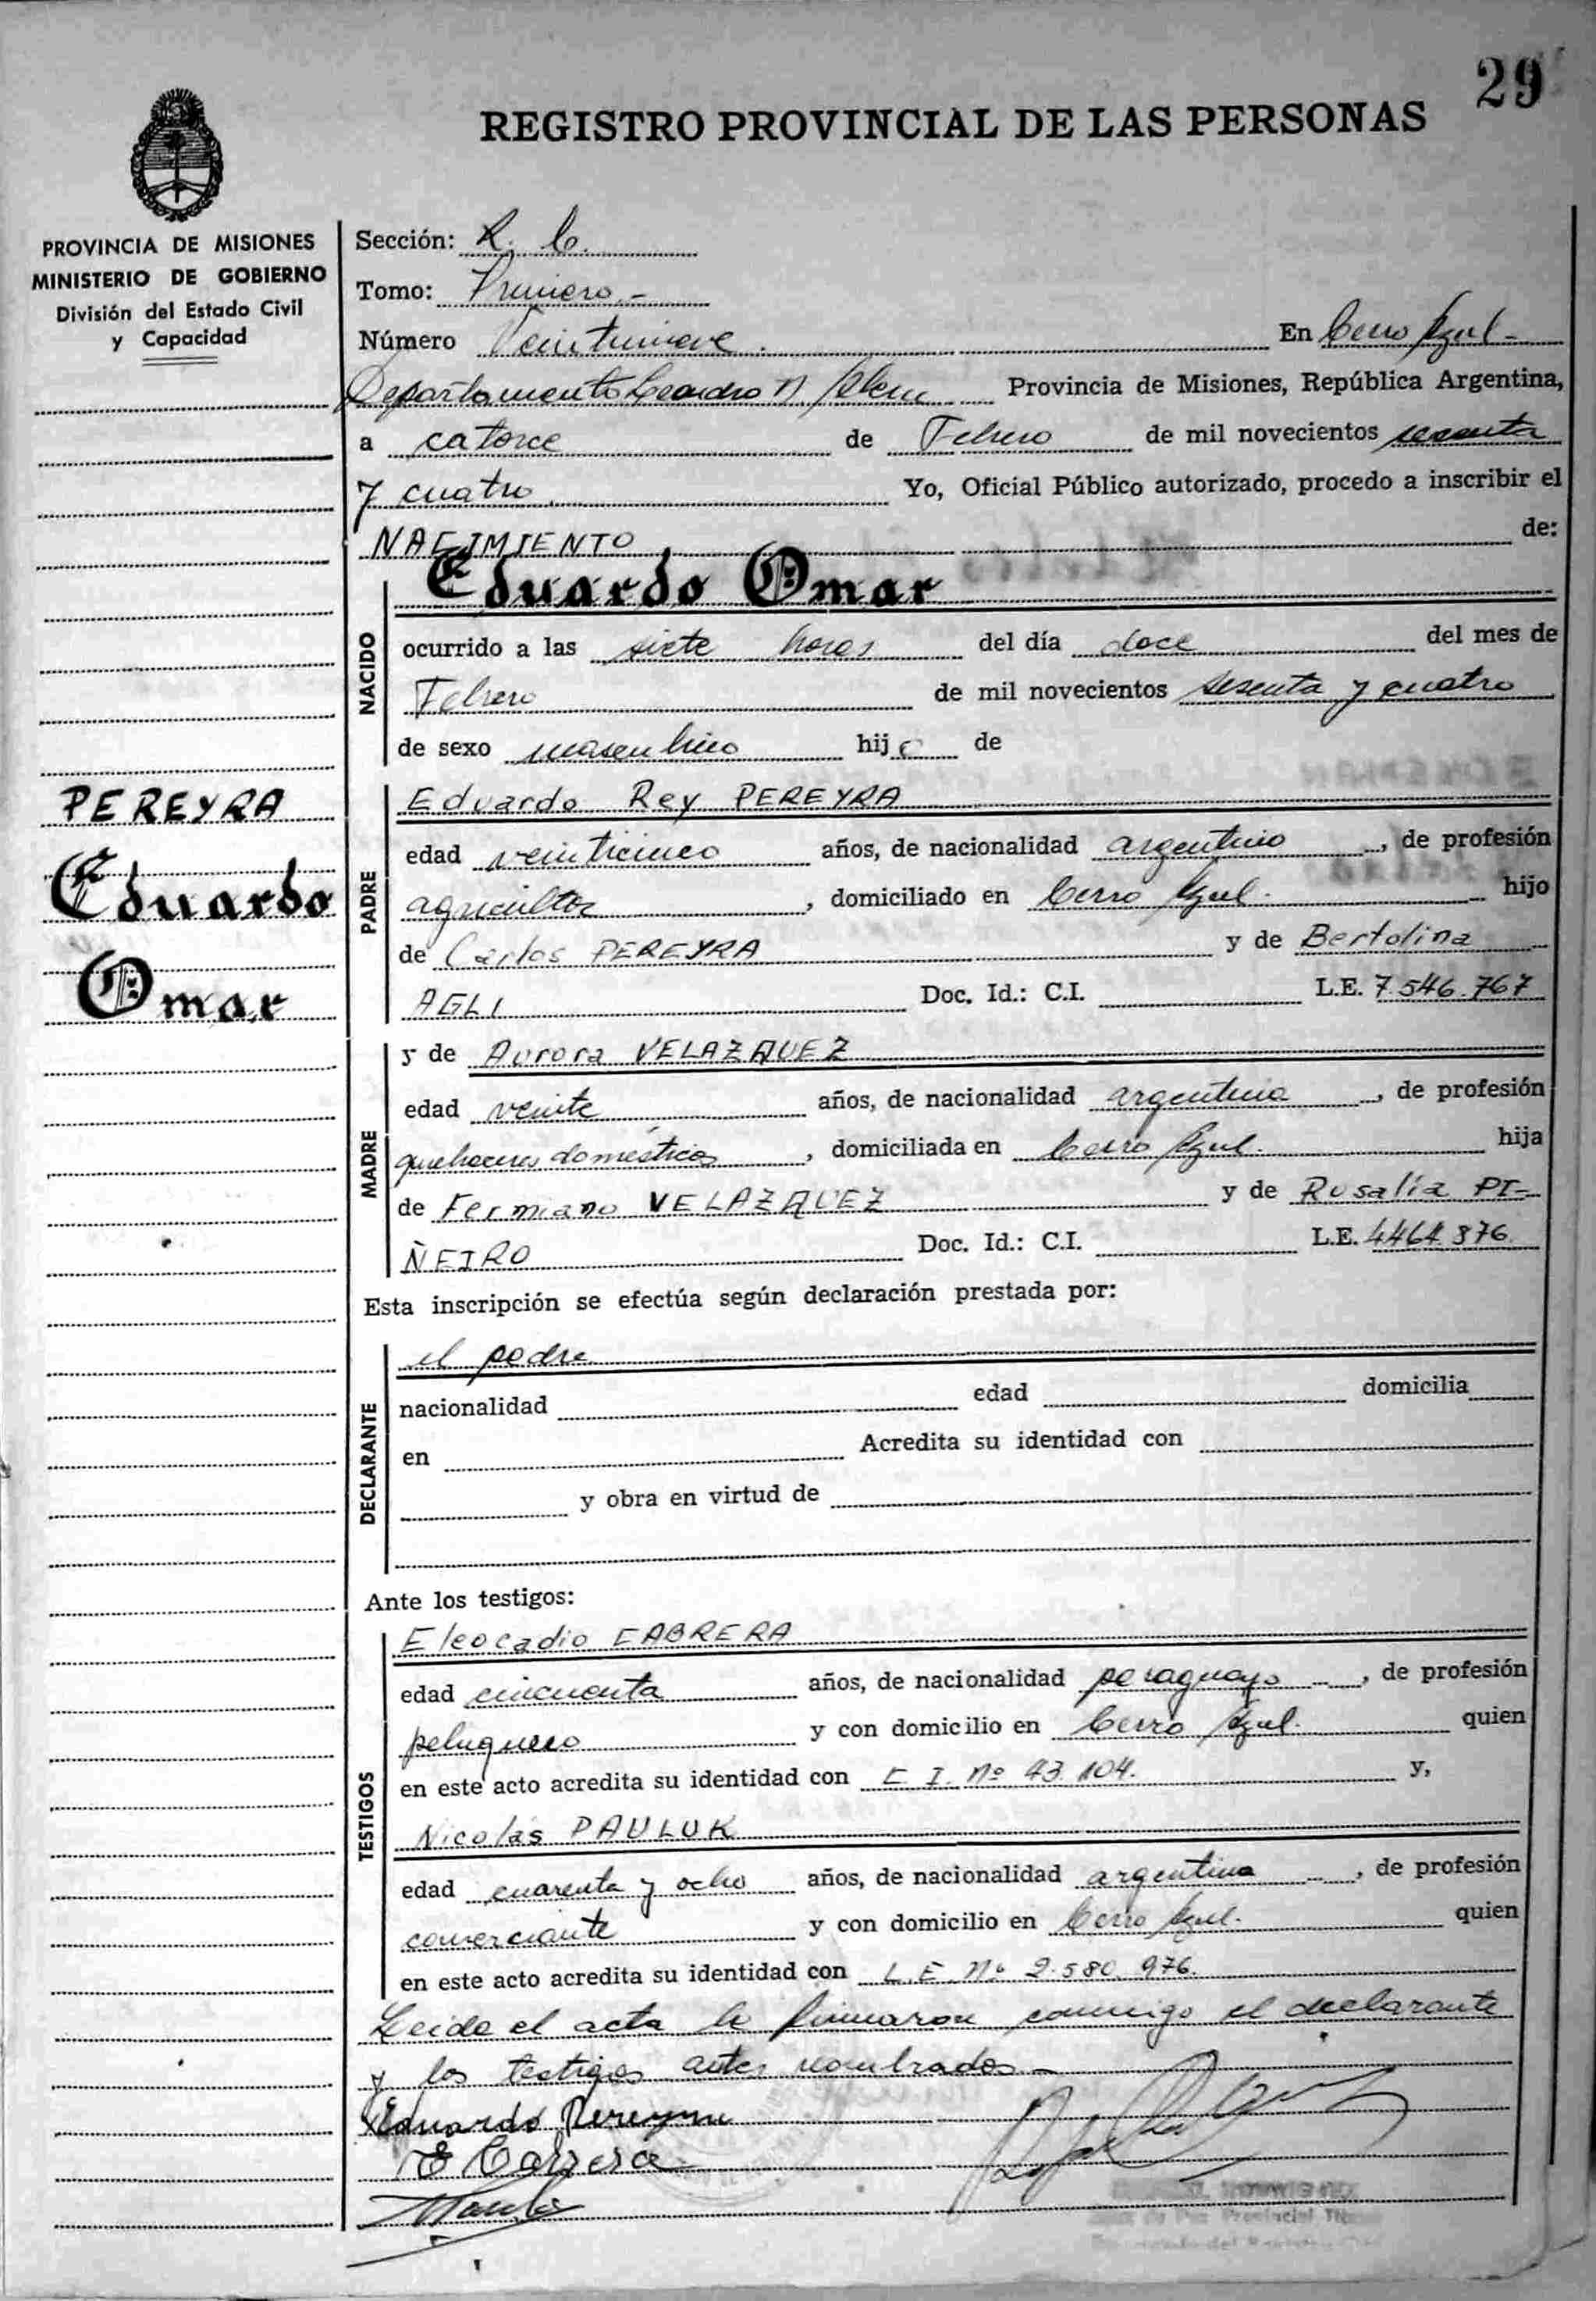 29
REGISTRO PROVINCIAL DE LAS PERSONAS
PROVINCIA DE MISIONES
MINISTERIO DE GOBIERNO
División del Estado Civil
y Capacidad
Sección: R. C.
Tomo: Primero.-
Número Veintinueve. En Cerro Azul-
Departamento Leandro N. Alem Provincia de Misiones, República Argentina,
a catorce de Febrero de mil novecientos sesenta
y cuatro. Yo, Oficial Público autorizado, procedo a inscribir el
NACIMIENTO de:
NACIDO
Eduardo Omar
ocurrido a las siete horas del día doce del mes de
Febrero de mil novecientos sesenta y cuatro
de sexo masculino hijo de
PEREYRA
Eduardo
Omar
PADRE
Eduardo Rey PEREYRA
edad veinticinco años, de nacionalidad argentino, de profesión
agricultor, domiciliado en Cerro Azul. hijo
de Carlos PEREYRA y de Bertolina
AGLI Doc. Id.: C.I. L.E. 7.546.767
MADRE
y de Aurora VELAZQUEZ
edad veinte años, de nacionalidad argentina, de profesión
quehaceres domésticos, domiciliada en Cerro Azul. hija
de Fermiano VELAZQUEZ y de Rosalía PI-
ÑEIRO Doc. Id.: C.I. L.E. 4464.376
Esta inscripción se efectúa según declaración prestada por:
DECLARANTE
el padre
nacionalidad edad domicilia
en Acredita su identidad con
y obra en virtud de
Ante los testigos:
TESTIGOS
Eleocadio CABRERA
edad cincuenta años, de nacionalidad paraguayo, de profesión
peluquero y con domicilio en Cerro Azul. quien
en este acto acredita su identidad con C I. Nº 43.104. y,
Nicolás PAULUK
edad cuarenta y ocho años, de nacionalidad argentina, de profesión
comerciante y con domicilio en Cerro Azul. quien
en este acto acredita su identidad con L.E. Nº 2.580.976.
Leida el acta la firmaron conmigo el declarante
y los testigos antes nombrados.-
Eduardo Pereyra
E Cabrera